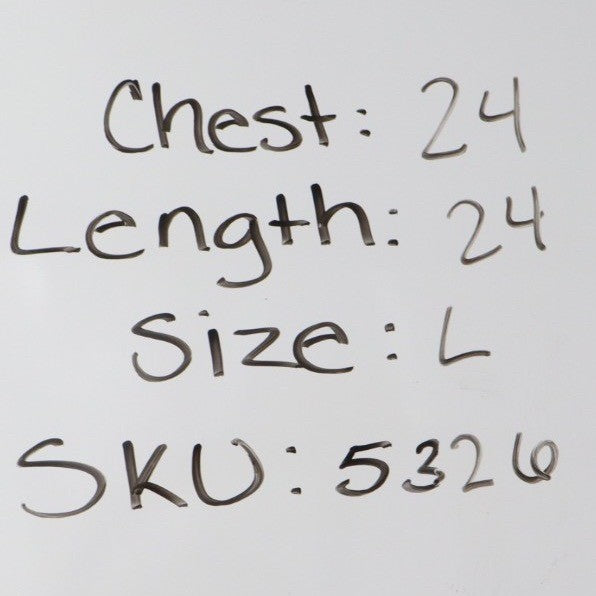 Chest: 24
Length: 24
Size: L
SKU: 5326